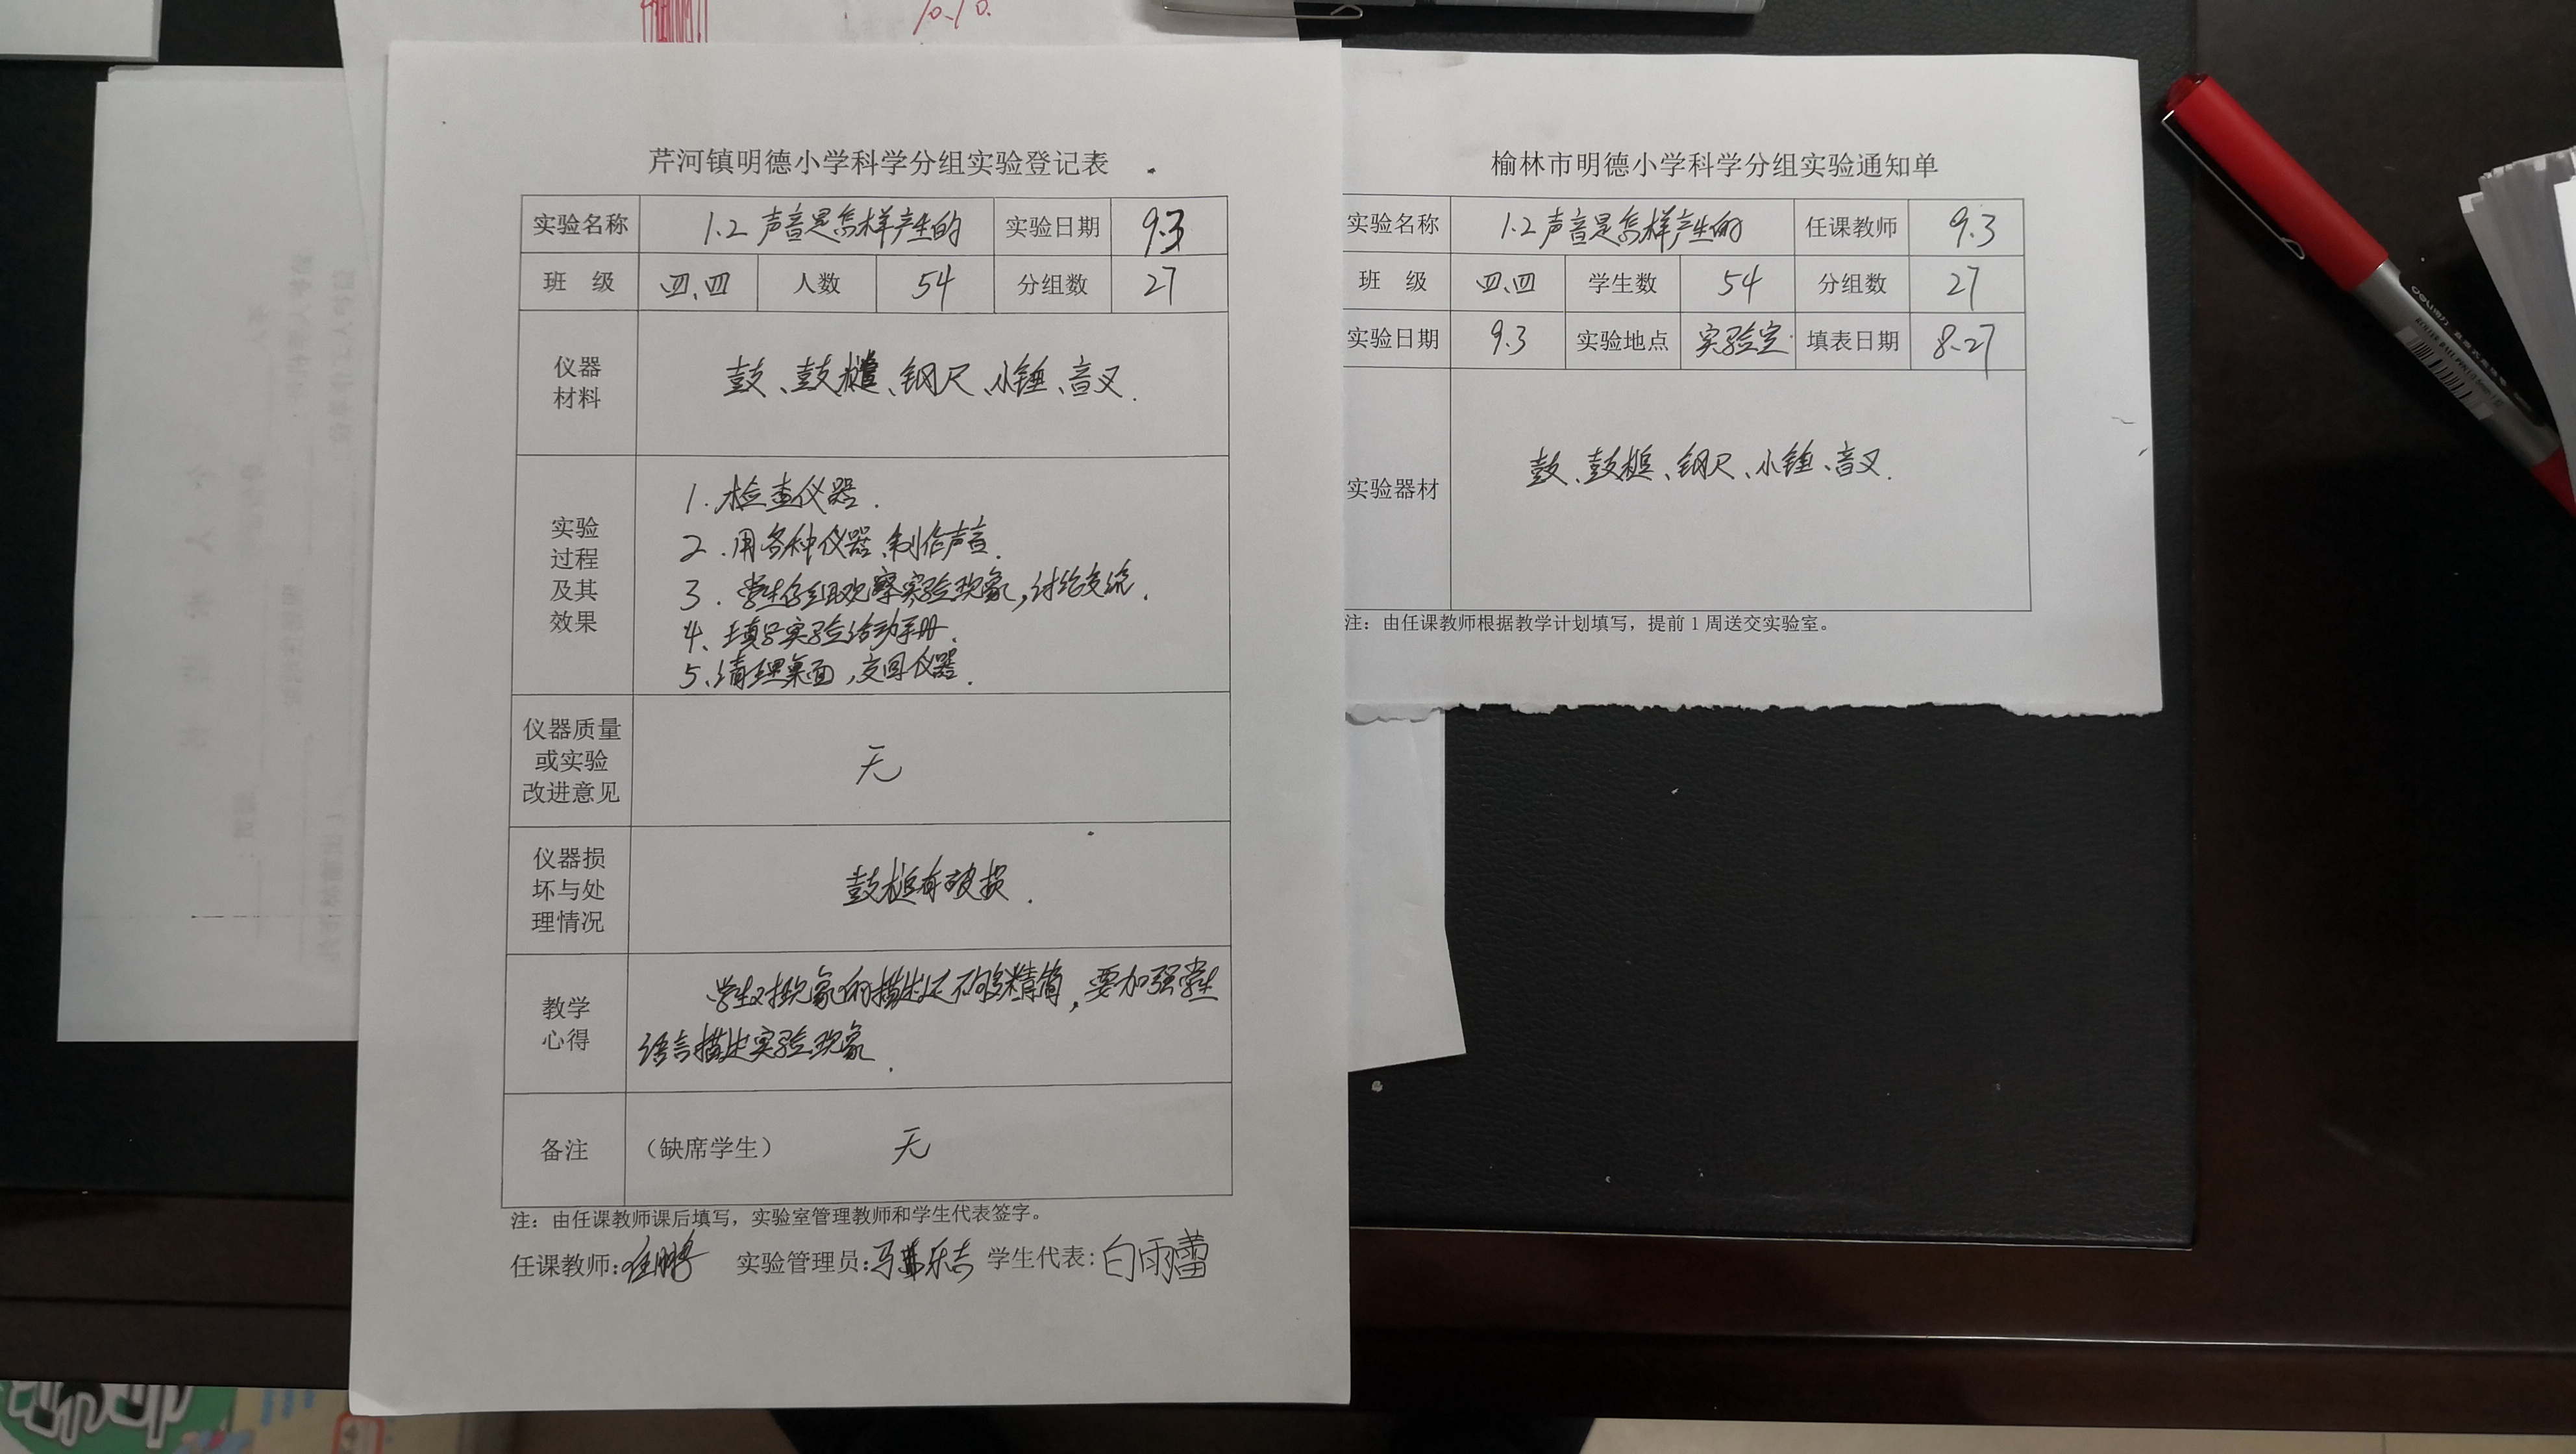 10.10.
芹河镇明德小学科学分组实验登记表
实验名称 1.2 声音是怎样产生的 实验日期 9.3
班 级 四、四 人数 54 分组数 27
仪器
材料
鼓、鼓槌、钢尺、小锤、音叉.
实验
过程
及其
效果
1.检查仪器.
2.用各种仪器制作声音.
3.学生分组观察实验现象,讨论交流.
4、填写实验活动手册.
5、清理桌面,交回仪器.
仪器质量
或实验
改进意见
无
仪器损
坏与处
理情况
鼓槌有破损.
教学
心得
学生对现象的描述还不够精简,要加强学生
语言描述实验现象.
备注 (缺席学生) 无
注：由任课教师课后填写，实验室管理教师和学生代表签字。
任课教师: 实验管理员:马 学生代表:白雨蕾
榆林市明德小学科学分组实验通知单
实验名称 1.2 声音是怎样产生的 任课教师 9.3
班 级 四、四 学生数 54 分组数 27
实验日期 9.3 实验地点 实验室 填表日期 8.27
实验器材 鼓、鼓槌、钢尺、小锤、音叉.
注：由任课教师根据教学计划填写，提前1周送交实验室。